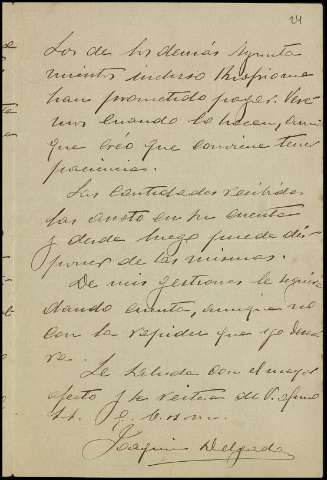 24
Los de los demás Ayunta
mientos incluso Riofrio me
han prometido pagar. Vere
mos cuando lo hacen, aun
que creo que conviene tener
paciencia.
Las cantidades recibidas
las anoto en su cuenta
y desde luego puede dis
poner de las mismas.
De mis gestiones le seguiré
dando cuenta, aunque no
con la rapidez que yo desea
ra.
Le saluda con el mayor
afecto y se reitera de V. afmo
s.s. q. b. s. m.
Joaquin Delgado